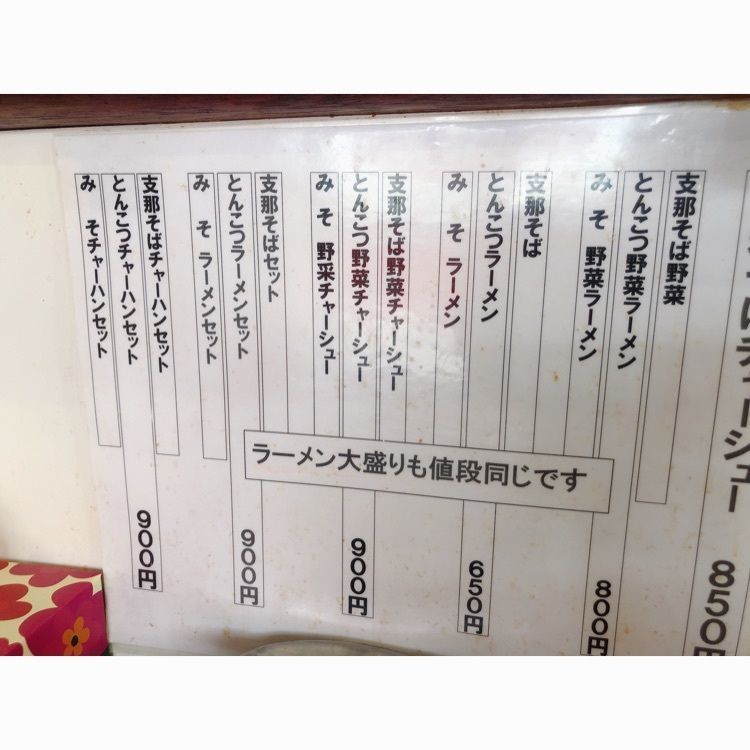 850円
支那そば野菜
とんこつ野菜ラーメン
み そ 野菜ラーメン
800円
支那そば
とんこつラーメン
み そ ラーメン
650円
支那そば野菜チャーシュー
とんこつ野菜チャーシュー
み そ 野采チャーシュー
900円
支那そばセット
とんこつラーメンセット
み そ ラーメンセット
900円
支那そばチャーハンセット
とんこつチャーハンセット
み そチャーハンセット
900円
ラーメン大盛りも値段同じです